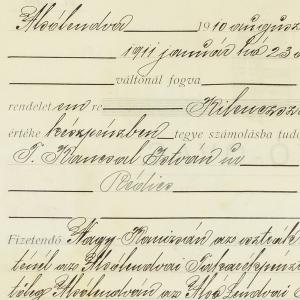 Alsólendva 1910 augusz
1911 január hó 23 á
váltónál fogva
rendelet em re Kilenczszá
értéke készpénzben tegye számolásba tudó
T. Kancsal István úr
Rédics
Fizetendő Nagy Kanizsán az osztrák
tenél az Alsólendvai Takarékpénz
tőleg Alsólendván az Alsólendvai